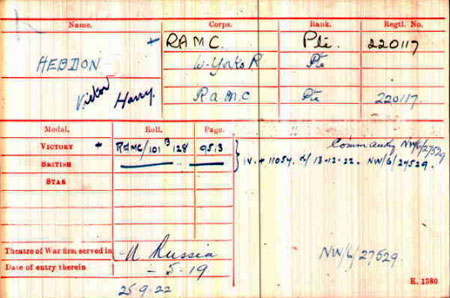 Name. Corps. Rank. Regtl. No.
HEBDON + RAMC. Pte. 220117
Victor Harry. W. Yorks R Pte
RAMC Pte 220117.
Medal. Roll. Page.
VICTORY + RAMC/101 B 128 953
BRITISH
STAR
Commanly NW/6/27529
IV. + 11054. d/ 13-12-22. NW/6/27529.
Theatre of War first served in N Russia
Date of entry therein - 5-19
25.9.22
NW/6/27529.
K. 1380